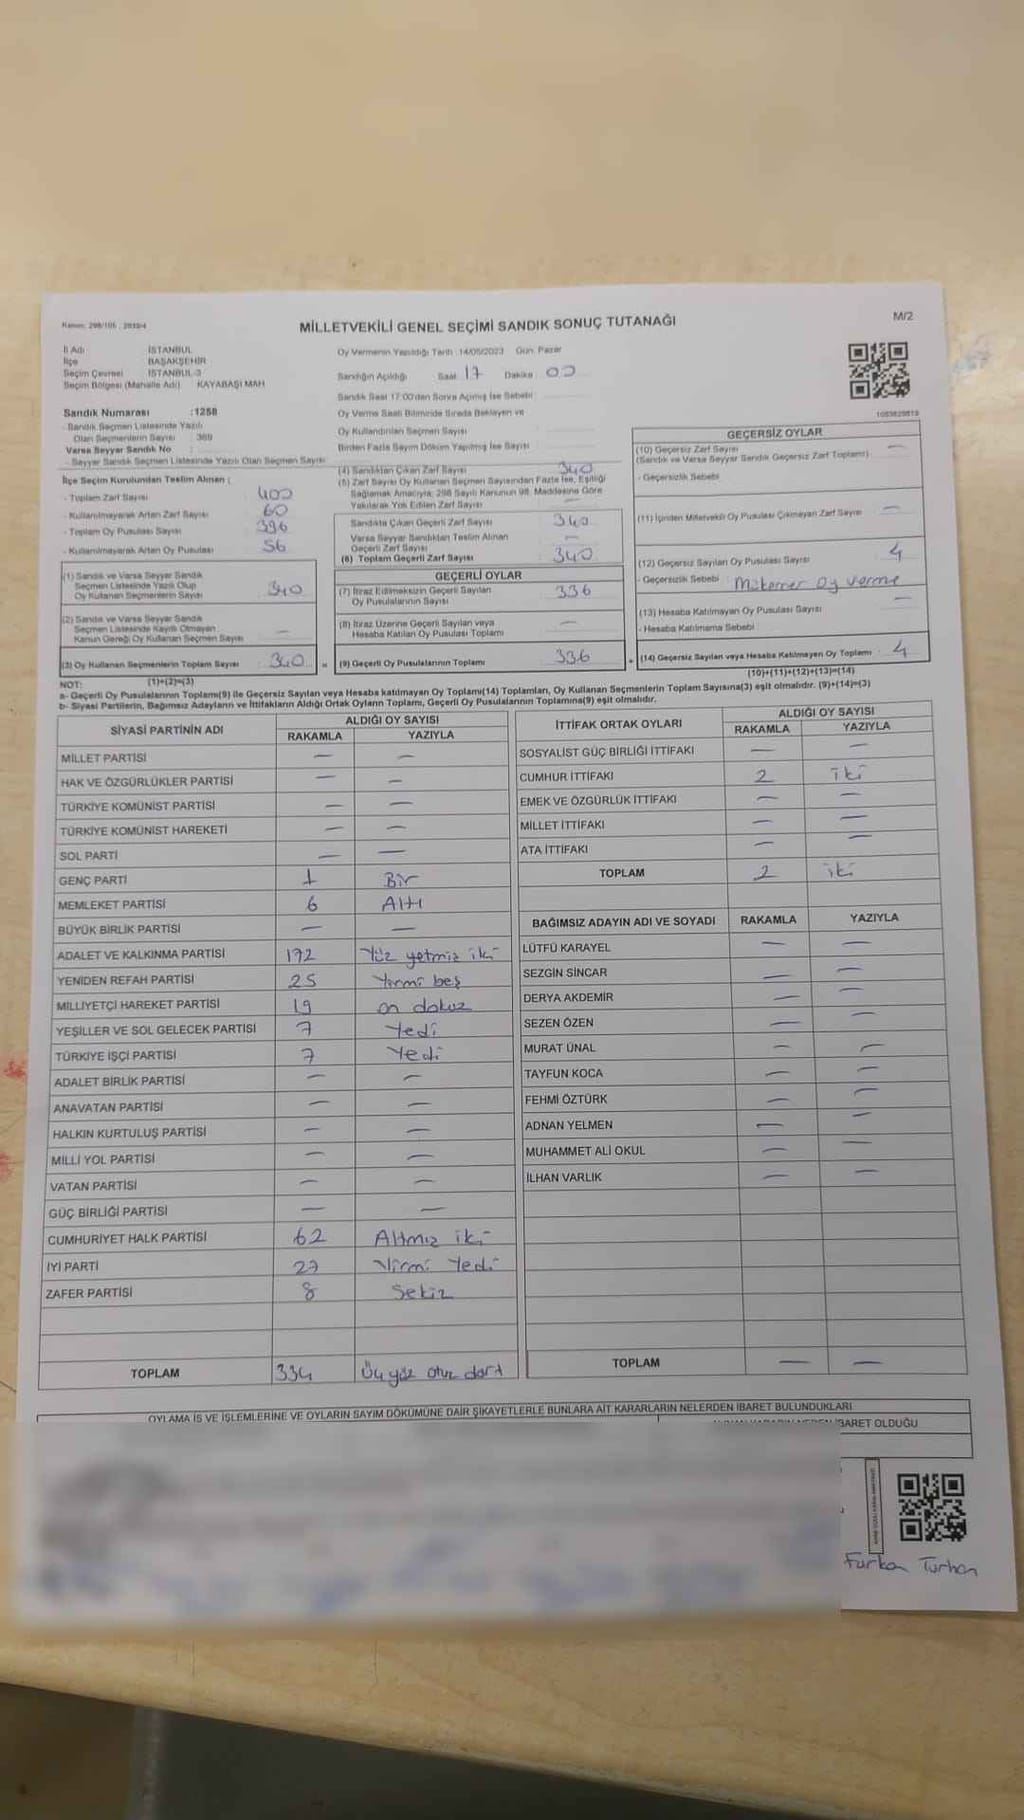 Kanun: 298/105 , 2839/4
MİLLETVEKİLİ GENEL SEÇİMİ SANDIK SONUÇ TUTANAĞI
M/2
İl Adı İSTANBUL
İlçe BAŞAKŞEHİR
Seçim Çevresi İSTANBUL-3
Seçim Bölgesi (Mahalle Adı) KAYABAŞI MAH
Sandık Numarası :1258
- Sandık Seçmen Listesinde Yazılı
Olan Seçmenlerin Sayısı : 389
Varsa Seyyar Sandık No :
- Seyyar Sandık Seçmen Listesinde Yazılı Olan Seçmen Sayısı
Oy Vermenin Yapıldığı Tarih :14/05/2023 Gün: Pazar
Sandığın Açıldığı Saat 17 Dakika 00
Sandık Saat 17:00'den Sonra Açılmış İse Sebebi
Oy Verme Saati Bitiminde Sırada Bekleyen ve
Oy Kullandırılan Seçmen Sayısı
Birden Fazla Sayım Döküm Yapılmış İse Sayısı
İlçe Seçim Kurulundan Teslim Alınan :
- Toplam Zarf Sayısı 400
- Kullanılmayarak Artan Zarf Sayısı 60
- Toplam Oy Pusulası Sayısı 396
- Kullanılmayarak Artan Oy Pusulası 56
(1) Sandık ve Varsa Seyyar Sandık
Seçmen Listesinde Yazılı Olup
Oy Kullanan Seçmenlerin Sayısı 340
(2) Sandık ve Varsa Seyyar Sandık
Seçmen Listesinde Kayıtlı Olmayan
Kanun Gereği Oy Kullanan Seçmen Sayısı —
(3) Oy Kullanan Seçmenlerin Toplam Sayısı 340 =
(1)+(2)=(3)
(4) Sandıktan Çıkan Zarf Sayısı 340
(5) Zarf Sayısı Oy Kullanan Seçmen Sayısından Fazla İse, Eşitliği
Sağlamak Amacıyla, 298 Sayılı Kanunun 98. Maddesine Göre
Yakılarak Yok Edilen Zarf Sayısı —
Sandıkta Çıkan Geçerli Zarf Sayısı 340
Varsa Seyyar Sandıktan Teslim Alınan
Geçerli Zarf Sayısı —
(6) Toplam Geçerli Zarf Sayısı 340
GEÇERLİ OYLAR
(7) İtiraz Edilmeksizin Geçerli Sayılan
Oy Pusulalarının Sayısı 336
(8) İtiraz Üzerine Geçerli Sayılan veya
Hesaba Katılan Oy Pusulası Toplamı —
(9) Geçerli Oy Pusulalarının Toplamı 336 +
GEÇERSİZ OYLAR
(10) Geçersiz Zarf Sayısı —
(Sandık ve Varsa Seyyar Sandık Geçersiz Zarf Toplamı)
- Geçersizlik Sebebi
(11) İçinden Milletvekili Oy Pusulası Çıkmayan Zarf Sayısı —
(12) Geçersiz Sayılan Oy Pusulası Sayısı 4
- Geçersizlik Sebebi Mükerrer oy verme
(13) Hesaba Katılmayan Oy Pusulası Sayısı —
- Hesaba Katılmama Sebebi
(14) Geçersiz Sayılan veya Hesaba Katılmayan Oy Toplamı 4
(10)+(11)+(12)+(13)=(14)
NOT:
a- Geçerli Oy Pusulalarının Toplamı(9) ile Geçersiz Sayılan veya Hesaba katılmayan Oy Toplamı(14) Toplamları, Oy Kullanan Seçmenlerin Toplam Sayısına(3) eşit olmalıdır. (9)+(14)=(3)
b- Siyasi Partilerin, Bağımsız Adayların ve İttifakların Aldığı Ortak Oyların Toplamı, Geçerli Oy Pusulalarının Toplamına(9) eşit olmalıdır.
SİYASİ PARTİNİN ADI ALDIĞI OY SAYISI
RAKAMLA YAZIYLA
MİLLET PARTİSİ — —
HAK VE ÖZGÜRLÜKLER PARTİSİ — —
TÜRKİYE KOMÜNİST PARTİSİ — —
TÜRKİYE KOMÜNİST HAREKETİ — —
SOL PARTİ — —
GENÇ PARTİ 1 Bir
MEMLEKET PARTİSİ 6 Altı
BÜYÜK BİRLİK PARTİSİ — —
ADALET VE KALKINMA PARTİSİ 172 Yüz yetmiş iki
YENİDEN REFAH PARTİSİ 25 Yirmi beş
MİLLİYETÇİ HAREKET PARTİSİ 19 on dokuz
YEŞİLLER VE SOL GELECEK PARTİSİ 7 Yedi
TÜRKİYE İŞÇİ PARTİSİ 7 Yedi
ADALET BİRLİK PARTİSİ — —
ANAVATAN PARTİSİ — —
HALKIN KURTULUŞ PARTİSİ — —
MİLLİ YOL PARTİSİ — —
VATAN PARTİSİ — —
GÜÇ BİRLİĞİ PARTİSİ — —
CUMHURİYET HALK PARTİSİ 62 Altmış iki
İYİ PARTİ 27 Yirmi Yedi
ZAFER PARTİSİ 8 Sekiz
TOPLAM 334 Üçyüz otuz dört
İTTİFAK ORTAK OYLARI ALDIĞI OY SAYISI
RAKAMLA YAZIYLA
SOSYALİST GÜÇ BİRLİĞİ İTTİFAKI — —
CUMHUR İTTİFAKI 2 iki
EMEK VE ÖZGÜRLÜK İTTİFAKI — —
MİLLET İTTİFAKI — —
ATA İTTİFAKI — —
TOPLAM 2 iki
BAĞIMSIZ ADAYIN ADI VE SOYADI RAKAMLA YAZIYLA
LÜTFÜ KARAYEL — —
SEZGİN SİNCAR — —
DERYA AKDEMİR — —
SEZEN ÖZEN — —
MURAT ÜNAL — —
TAYFUN KOCA — —
FEHMİ ÖZTÜRK — —
ADNAN YELMEN — —
MUHAMMET ALİ OKUL — —
İLHAN VARLIK — —
TOPLAM — —
OYLAMA İŞ VE İŞLEMLERİNE VE OYLARIN SAYIM DÖKÜMÜNE DAİR ŞİKAYETLERLE BUNLARA AİT KARARLARIN NELERDEN İBARET BULUNDUKLARI
İBARET OLDUĞU
Furkan Turhan